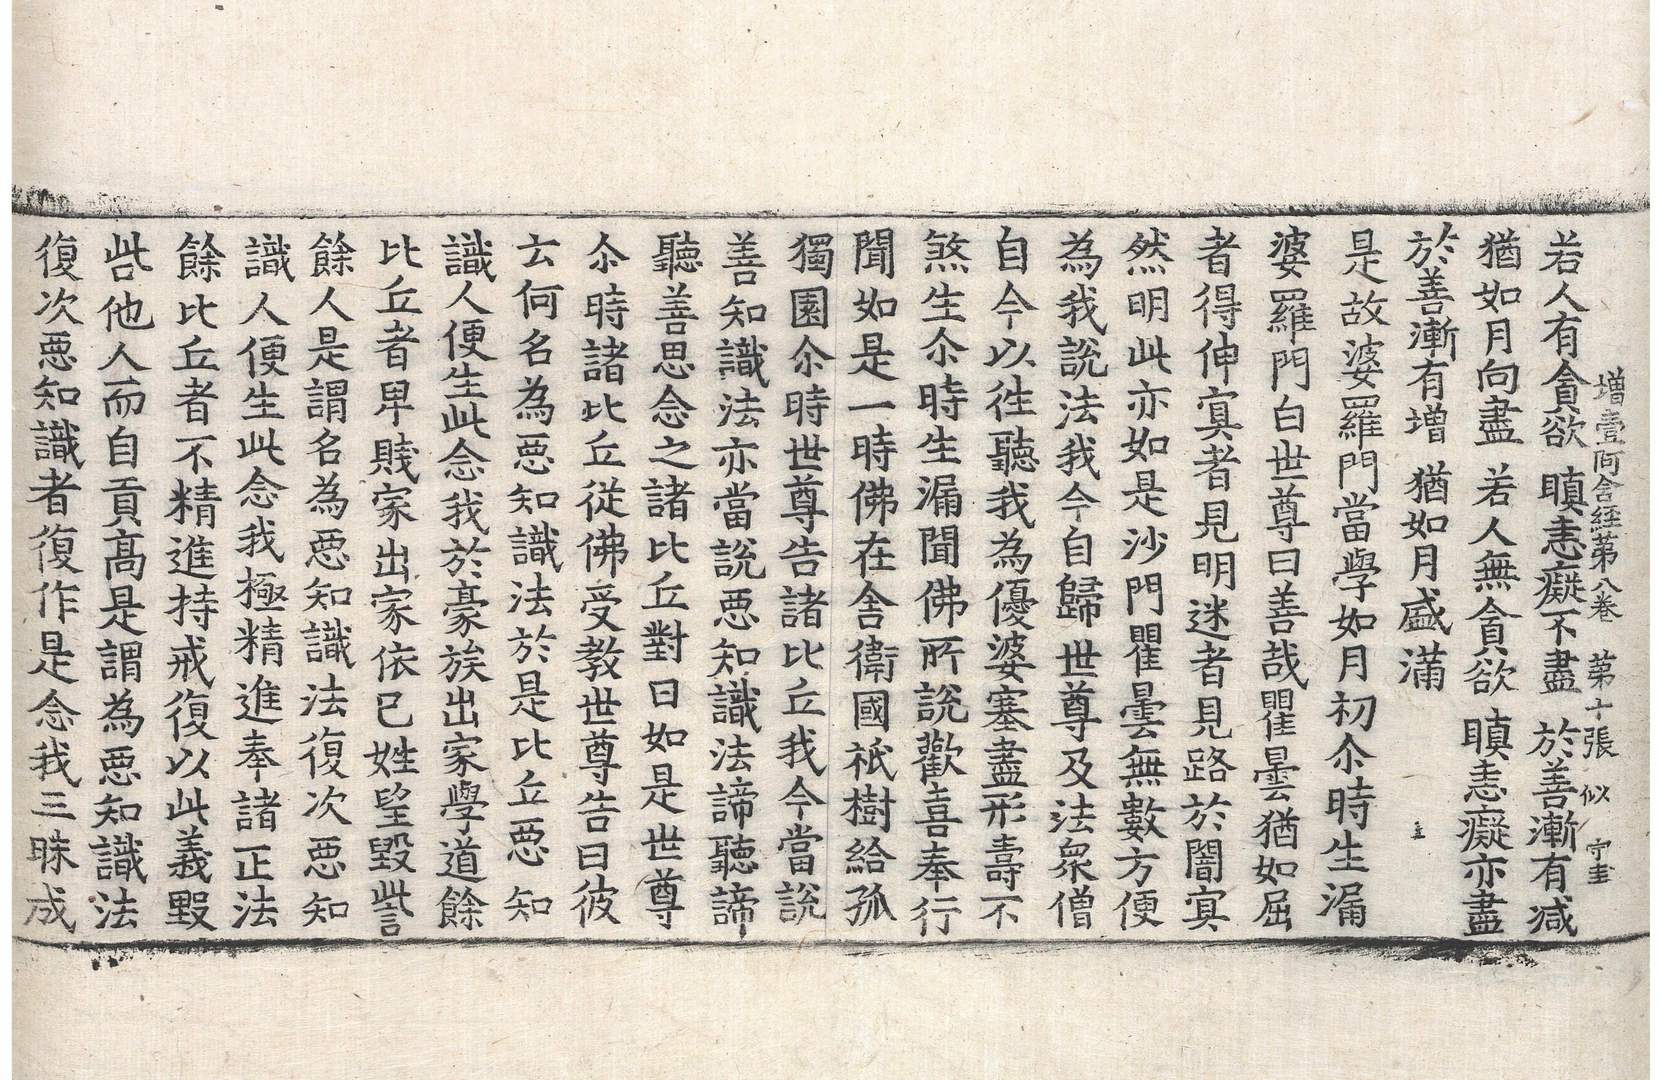 增壹阿含経苐八卷 苐十張 似 守圭
若人有貪欲 瞋恚癡不盡 於善漸有減
猶如月向盡 若人無貪欲 瞋恚癡亦盡
於善漸有增 猶如月盛滿
是故婆羅門當學如月初尒時生漏
婆羅門白世尊曰善哉瞿曇猶如屈
者得伸㝠者見明迷者見路於闇㝠
然明此亦如是沙門瞿曇無數方便
為我說法我今自歸世尊及法衆僧
自今以往聽我為優婆塞盡形壽不
煞生尒時生漏聞佛所說歡喜奉行
聞如是一時佛在舍衛國祇樹給孤
獨園尒時世尊告諸比丘我今當說
善知識法亦當說惡知識法諦聽諦
聽善思念之諸比丘對曰如是世尊
尒時諸比丘從佛受教世尊告曰彼
云何名為惡知識法於是比丘惡知
識人便生此念我於豪族出家學道餘
比丘者卑賤家出家依己姓望毀呰
餘人是謂名為惡知識法復次惡知
識人便生此念我極精進奉諸正法
餘比丘者不精進持戒復以此義毀
呰他人而自貢高是謂為惡知識法
復次惡知識者復作是念我三昧成